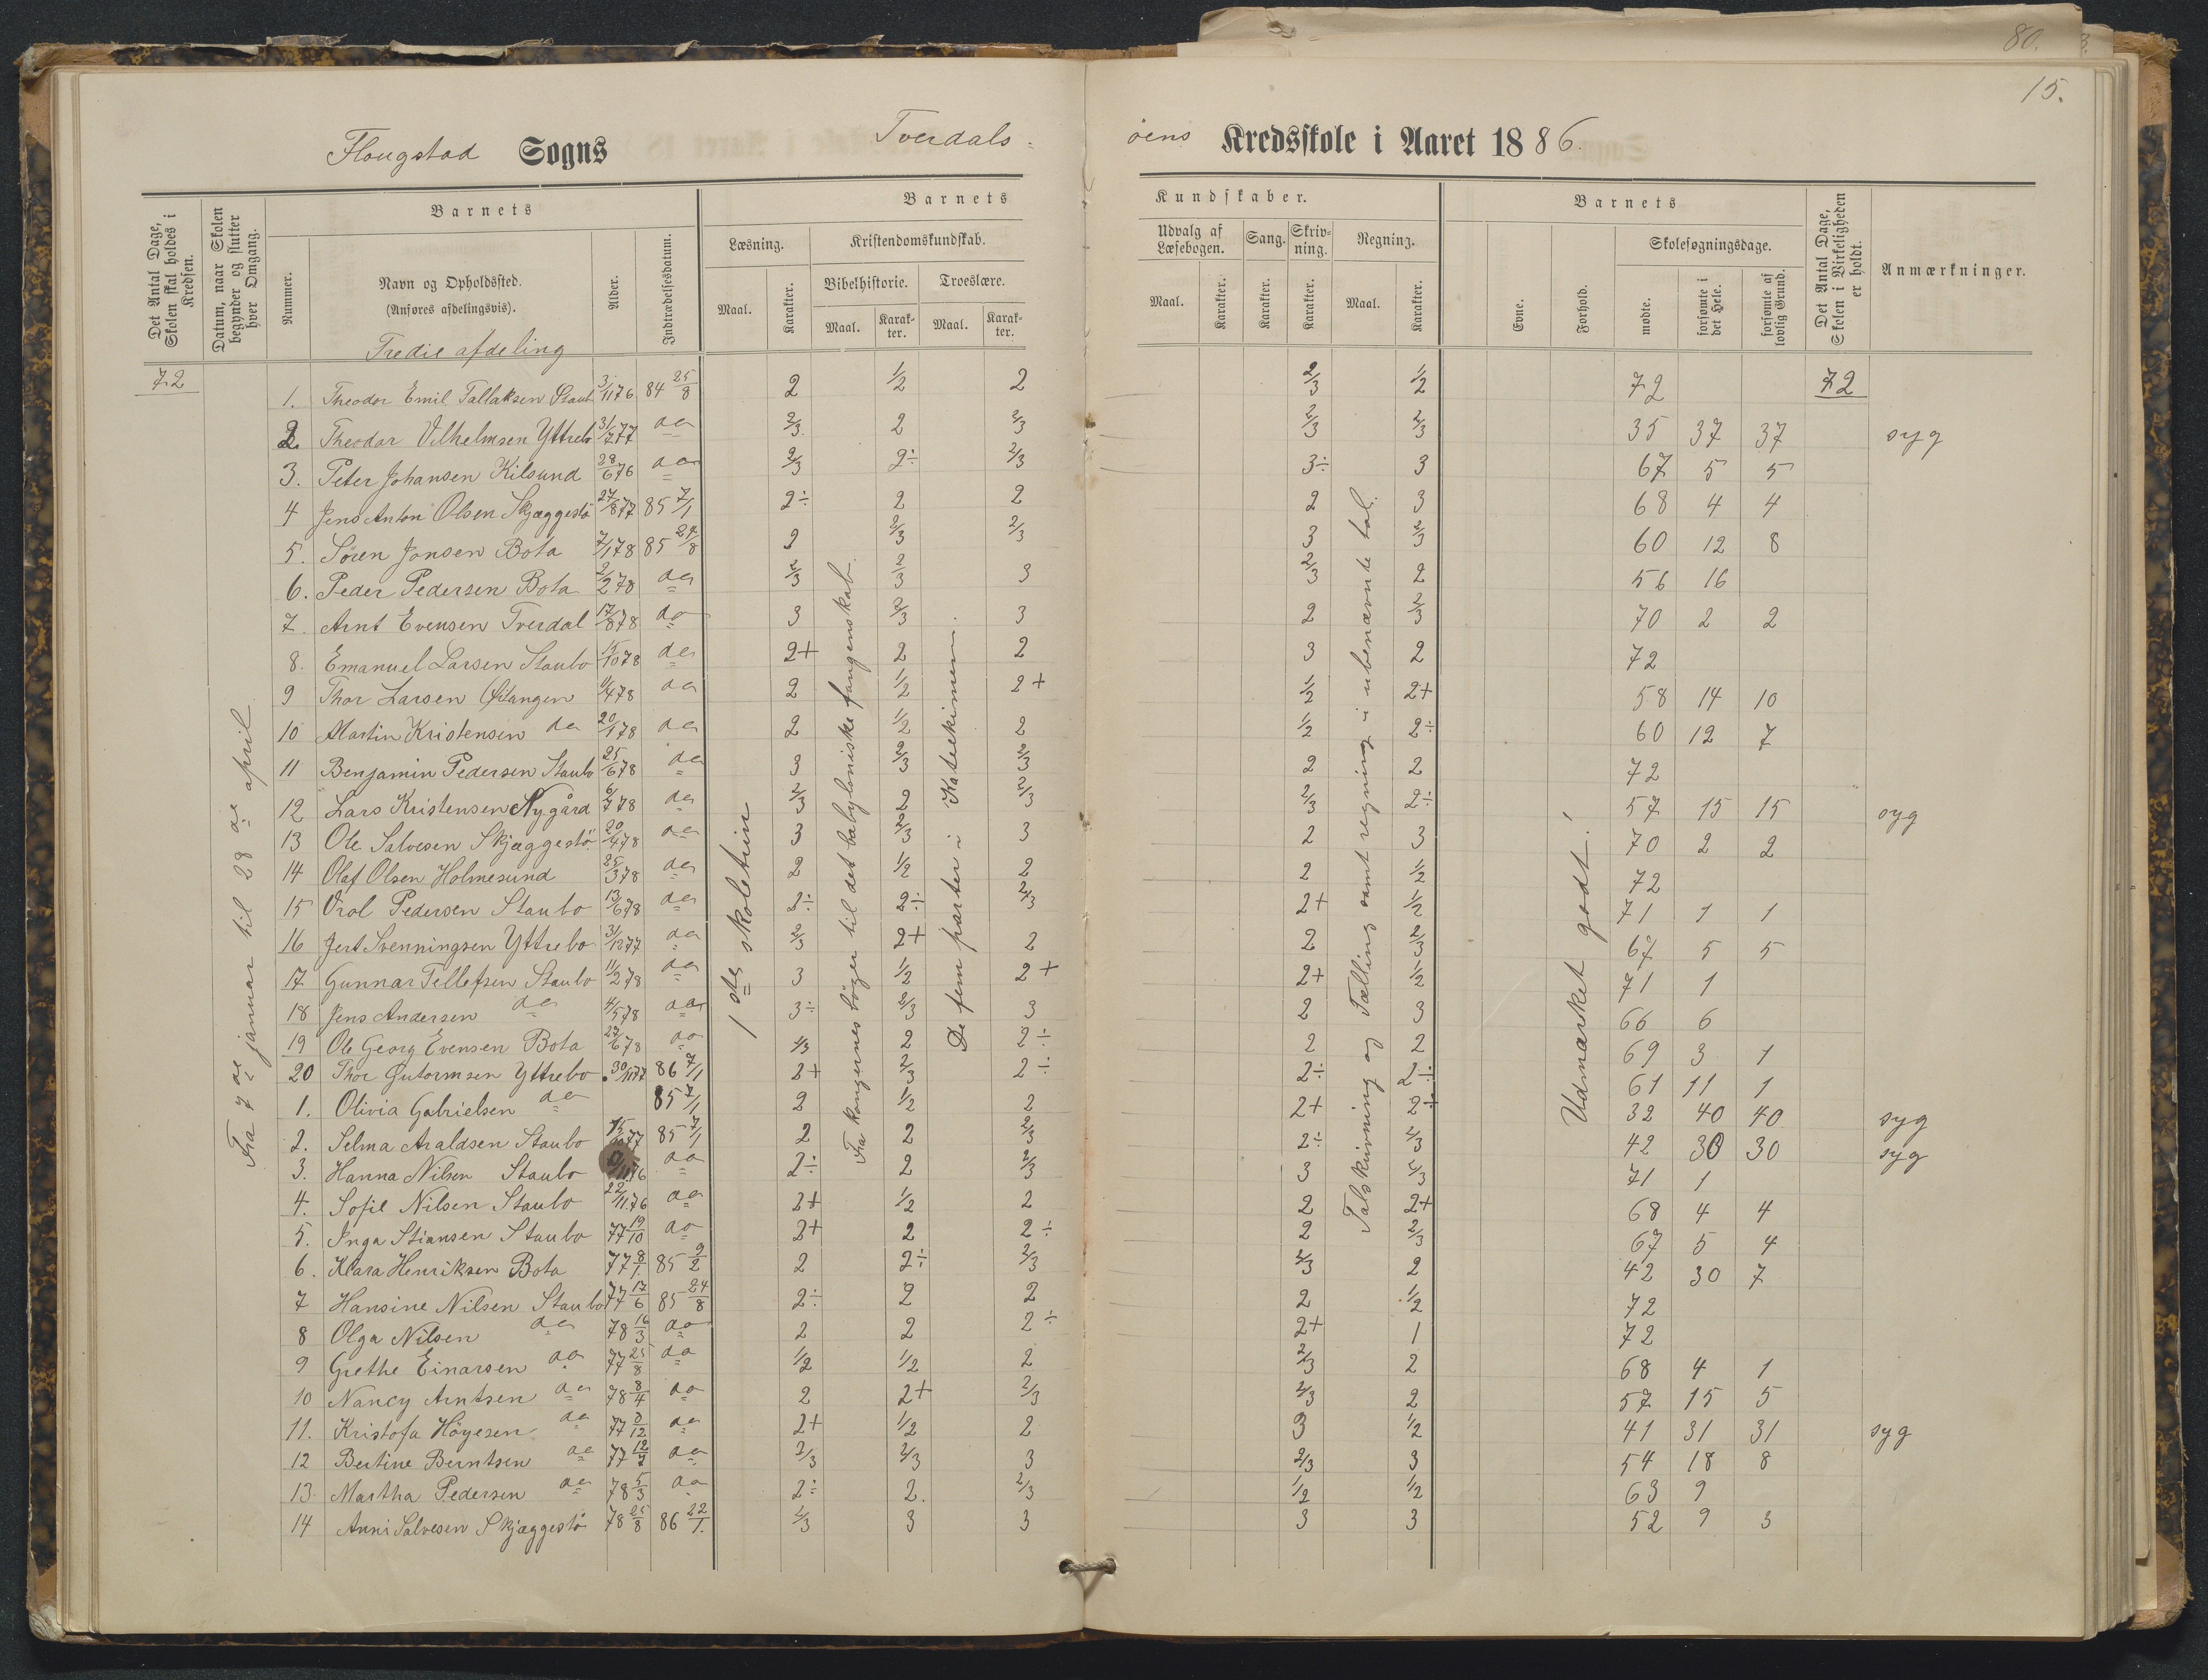 80.
15.
Flougstad Sogns Tverdals=
øens Kredsskole i Aaret 1886.
Det Antal Dage, Skolen skal holdes i Kredsen.
Datum, naar Skolen begynder og slutter hver Omgang.
Barnets
Nummer.
Navn og Opholdssted.
(Anføres afdelingsvis).
Alder.
Indtrædelsesdatum.
Barnets
Læsning.
Kristendomskundskab.
Maal.
Karakter.
Bibelhistorie.
Troeslære.
Maal.
Karak-ter.
Maal.
Karak-ter.
Kundskaber.
Udvalg af Læsebogen.
Sang.
Skriv-ning.
Regning.
Maal.
Karakter.
Karakter.
Karakter.
Maal.
Karakter.
Barnets
Evne.
Forhold.
Skolesøgningsdage.
mødte.
forsømte i det Hele.
forsømte af lovlig Grund.
Det Antal Dage, Skolen i Virkeligheden er holdt.
Anmærkninger.
Tredie afdeling
72
Fra 7de januar til 28de april
1ste skoletrin
Fra kongernes bøger til det babyloniske fangenskab.
De fem parter i Katekismen.
Talskrivning og Tælling samt regning i ubenævnte tal.
Udmærket godt!
72
1. Theodor Emil Tallaksen Staub 3/11 76 84 25/8 2 1/2 2 2/3 1/2 72
2. Theodor Vilhelmsen Yttrebo 31/7 77 do 2/3 2 2/3 2/3 2/3 35 37 37 syg
3. Peter Johansen Kilsund 28/6 76 do 2/3 2÷ 2/3 3÷ 3 67 5 5
4 Jens Anton Olsen Skjæggestø 27/8 77 85 7/1 2÷ 2 2 2 3 68 4 4
5. Søren Jonsen Bota 7/1 78 85 24/8 2 2/3 2/3 3 2/3 60 12 8
6. Peder Pedersen Bota 2/2 78 do 2/3 2/3 3 2/3 2 56 16
7. Arnt Evensen Tverdal 17/8 78 do 3 2/3 3 2 2/3 70 2 2
8. Emanuel Larsen Staubo 15/10 78 do 2+ 2 2 3 2 72
9 Thor Larsen Østangen 11/4 78 do 2 1/2 2+ 1/2 2+ 58 14 10
10 Martin Kristensen do 20/1 78 do 2 1/2 2 1/2 2÷ 60 12 7
11 Benjamin Pedersen Staubo 25/6 78 do 3 2/3 2/3 2 2 72
12 Lars Kristensen Nygård 6/7 78 do 2/3 2 2/3 2/3 2÷ 57 15 15 syg
13 Ole Salvesen Skjæggestö 20/4 78 do 3 2/3 3 2 3 70 2 2
14 Olaf Olsen Holmesund 25/3 78 do 2 1/2 2 2 1/2 72
15 Orol Pedersen Staubo 13/6 78 do 2÷ 2÷ 2/3 2+ 1/2 71 1 1
16 Jert Svenningsen Yttrebo 31/12 77 do 2/3 2+ 2 2 2/3 67 5 5
17. Gunnar Tellefsen Staubo 11/2 78 do 3 1/2 2+ 2+ 1/2 71 1
18 Jens Andersen do 4/5 78 do 3÷ 2/3 3 2 3 66 6
19 Ole Georg Evensen Bota 27/6 78 do 2/3 2 2÷ 2 2 69 3 1
20 Thor Gutormsen Yttrebo 30/11 77 86 7/1 2+ 2/3 2÷ 2÷ 2÷ 61 11 1
1. Olivia Gabrielsen do 85 7/1 2 1/2 2 2+ 2+ 32 40 40 syg
2. Selma Araldsen Staubo 15/10 77 85 7/1 2 2 2/3 2÷ 2/3 42 30 30 syg
3. Hanna Nilsen Staubo /11 76 do 2÷ 2 2/3 3 2/3 71 1
4. Sofie Nilsen Staubo 22/11 76 do 2+ 1/2 2 2 2+ 68 4 4
5. Inga Stiansen Staubo 77 19/10 do 2+ 2 2÷ 2 2/3 67 5 4
6. Klara Henriksen Bota 77 8/1 85 9/2 2 2÷ 2/3 2/3 2 42 30 7
7 Hansine Nilsen Staubo 77 17/6 85 24/8 2÷ 2 2 2 1/2 72
8 Olga Nilsen do 78 16/3 do 2 2 2÷ 2+ 1 72
9 Grethe Einarsen do 77 25/8 do 1/2 1/2 2 2/3 2 68 4 1
10 Nancy Arntsen do 78 8/4 do 2 2+ 2/3 2/3 2 57 15 5
11. Kristofa Höyesen do 77 8/12 do 2+ 1/2 2 3 1/2 41 31 31 syg
12 Bertine Berntsen do 77 12/7 do 2/3 2/3 3 2/3 3 54 18 8
13. Martha Pedersen do 78 5/3 do 2÷ 2. 2/3 1/2 1/2 63 9
14 Anni Salvesen Skjæggestö 78 25/8 86 22/1 2/3 3 3 3 3 52 9 3